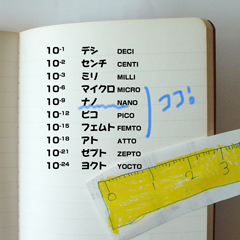 10-1 デシ DECI
10-2 センチ CENTI
10-3 ミリ MILLI
10-6 マイクロ MICRO
10-9 ナノ NANO
10-12 ピコ PICO
10-15 フェムト FEMTO
10-18 アト ATTO
10-21 ゼプト ZEPTO
10-24 ヨクト YOCTO
ココ!
0 1 2 3